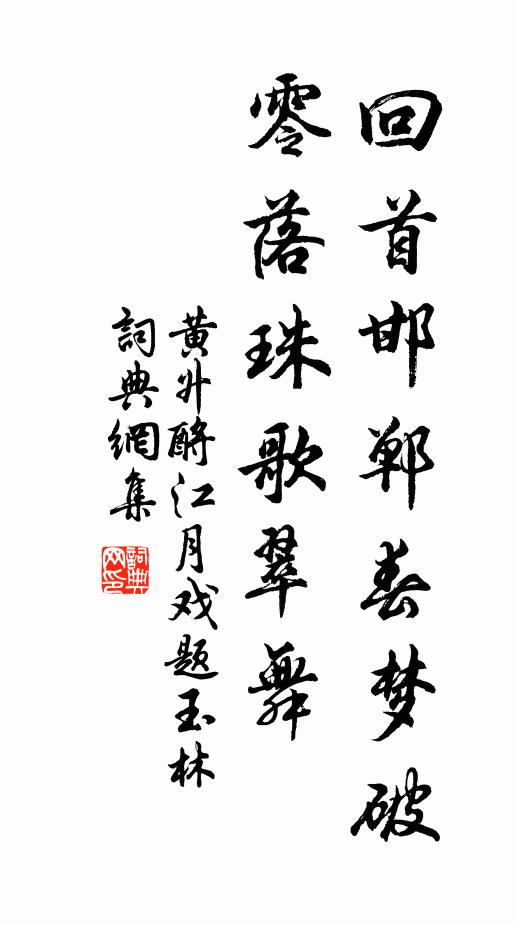 回首邯郸春梦破
零落珠歌翠舞
黄升酹江月戏题玉林
詞典網集
詞典网印